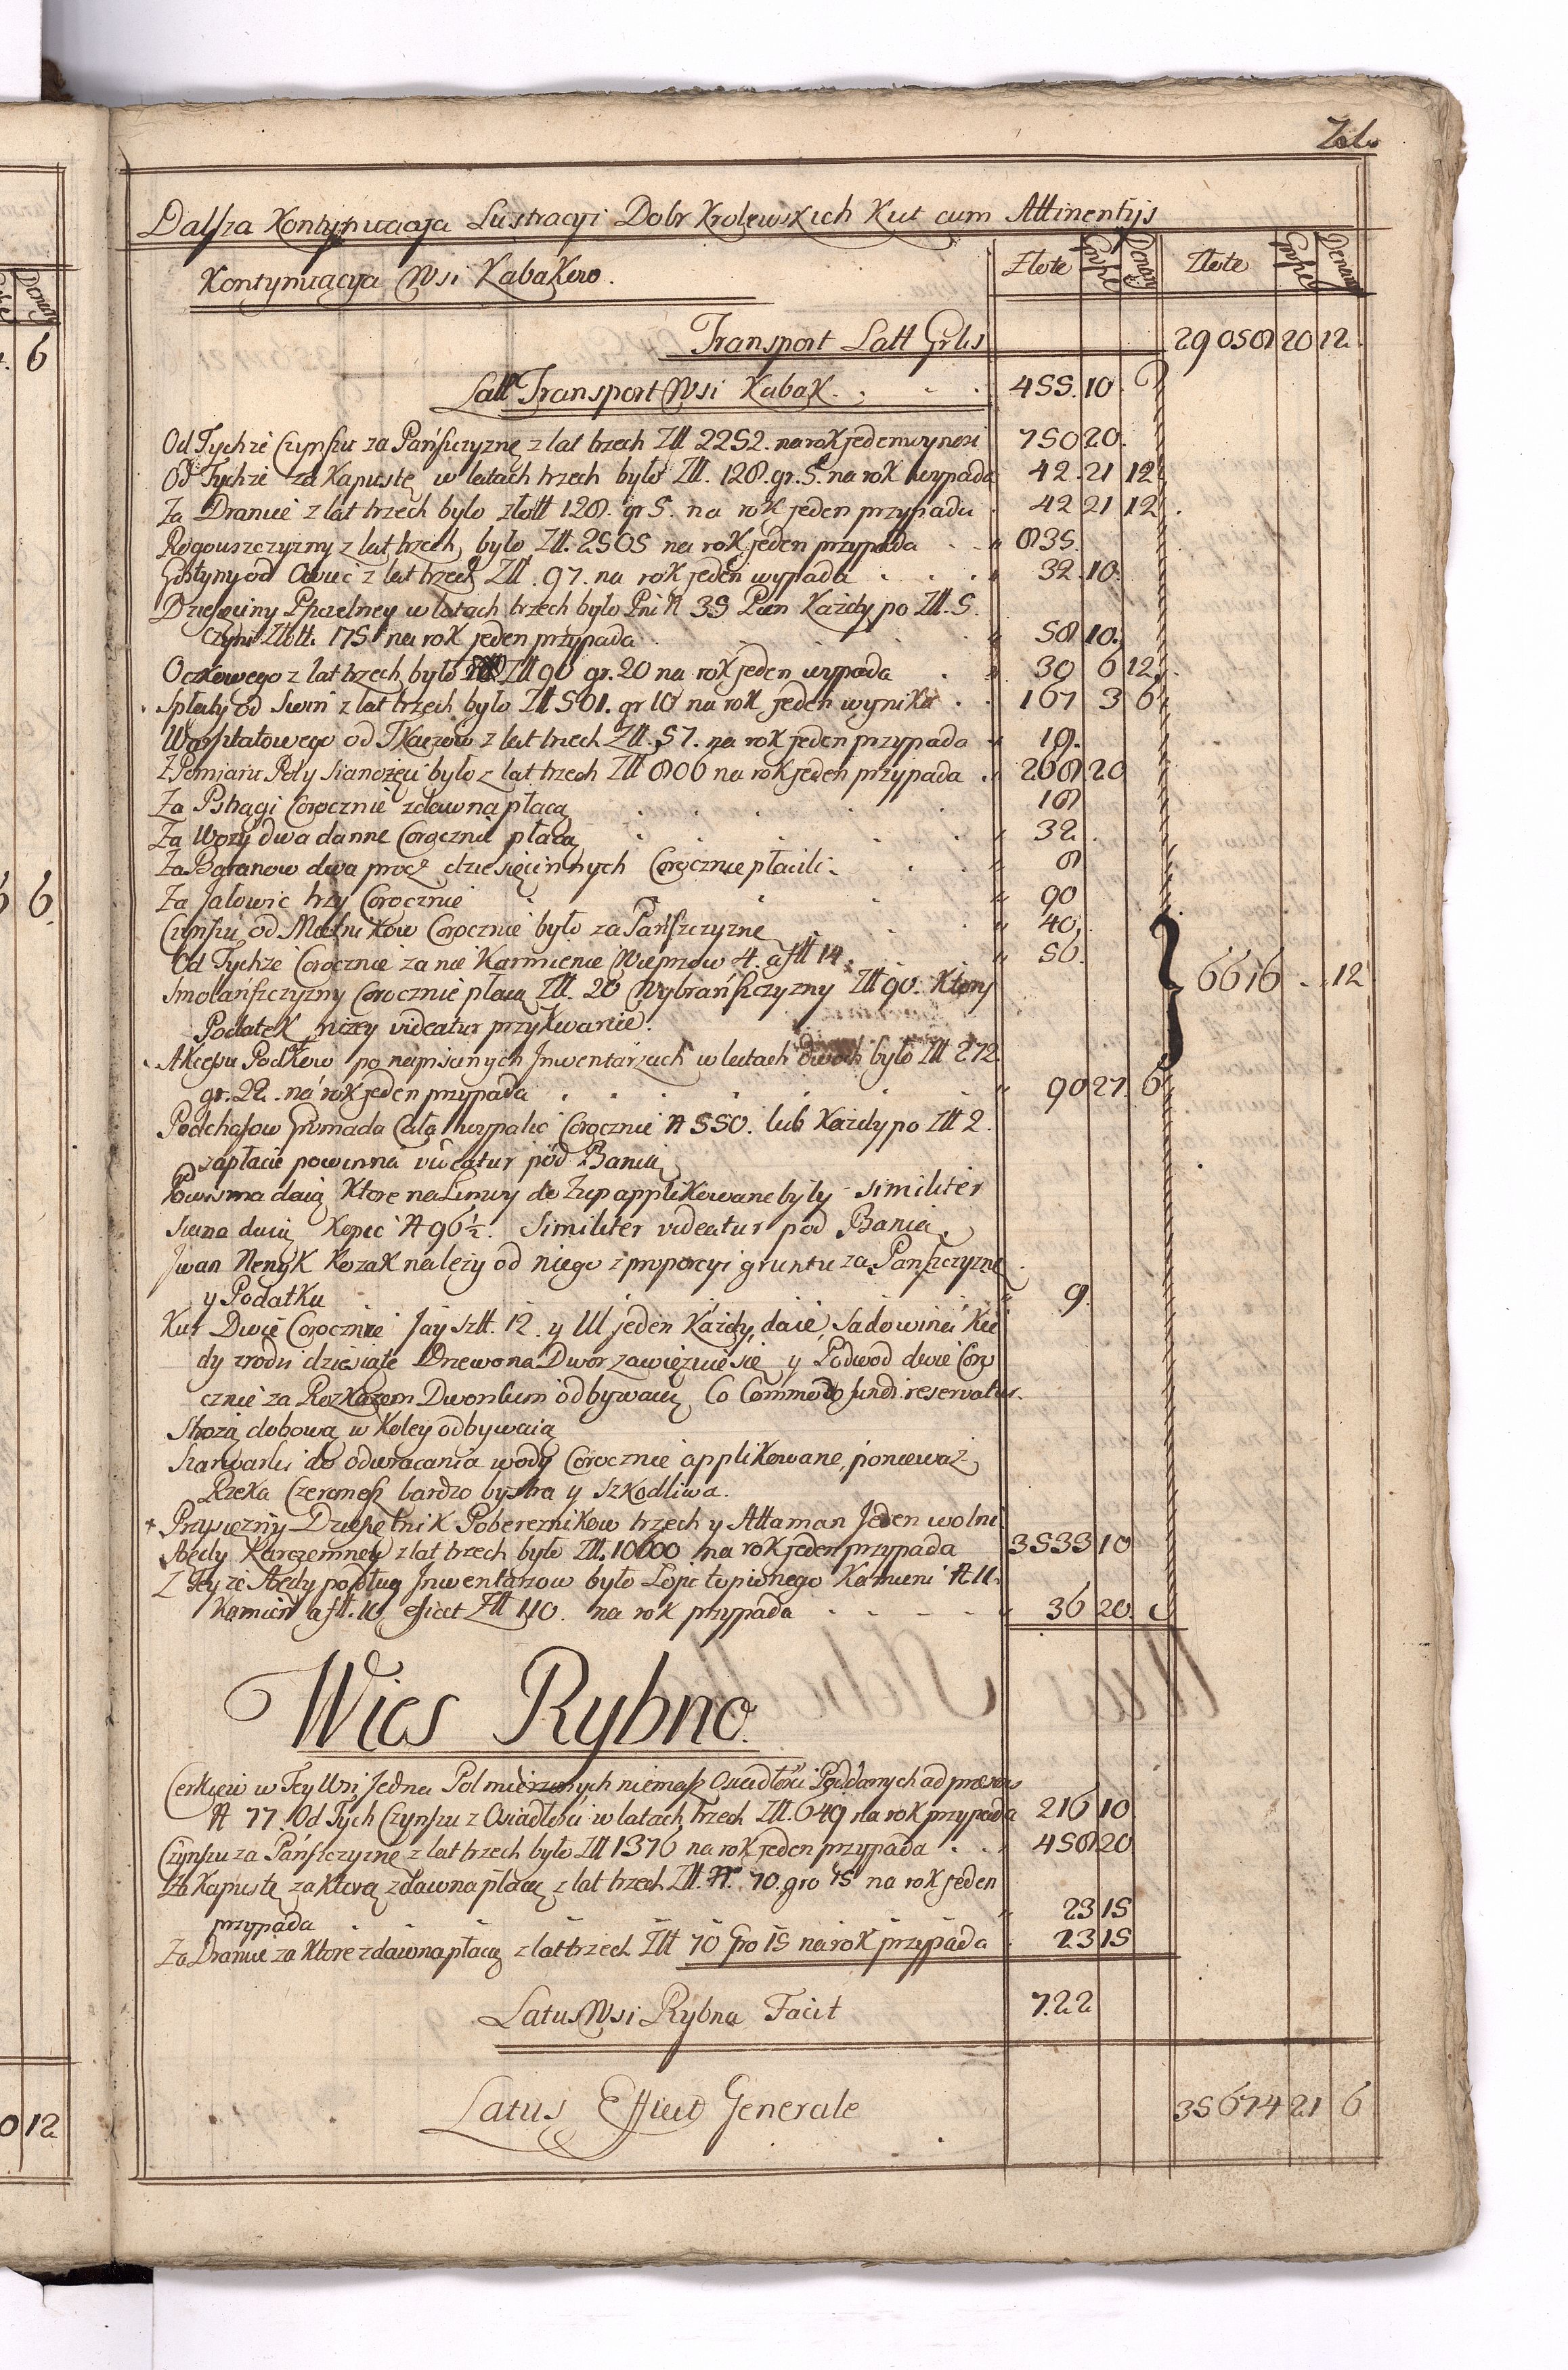 Dalsza Kontynuacya Lustracyi Dobr Krolewskich Kut cum Attinentijs
Kontynuacya Wsi Kabakowo. Złote Grosze Denary Złote Grosze Denary
Transport Latt Grlis 29058 20 12
Latt Transport Wsi Kabak. 455. 10
Od Tychże Czynszu za Pańszczyznę z lat trzech Złł 2252. na rok jeden wynosi 750 20.
Od Tychże za Kapustę w latach trzech było Złł. 128. gr. 5. na rok wypada 42. 21 12
Za Dranice z lat trzech było złott 128. gr 5. na rok jeden przypada 42 21 12
Rogouszczyzny z lat trzech było Złł. 2505 na rok jeden przypada 835.
Gostyny od Owiec z lat trzech Złł. 97. na rok jeden wypada 32. 10.
Dziesięciny Pszczelney w latach trzech było Pni N 35 Pien Każdy po Złł. 5.
czyni Złott. 175 na rok jeden przypada 58 10.
Oczkowego z lat trzech było Złł 90 gr. 20 na rok jeden wypada 30 6 12
Spłaty od Swiń z lat trzech było Złł 501. gr 10 na rok jeden wynika 167 3 6
Warsztatowego od Tkaczow z lat trzech Złł. 57. na rok jeden przypada 19.
Z Pomiaru Poły Sianożęci było z lat trzech Złł 806 na rok jeden przypada 268 20
Za Pstrągi Corocznie zdawna płacą 18
Za Wozy dwa danne Corocznie płacą 32.
Za Baranow dwa procz dziesięcinnych Corocznie płacili 8
Za Jałowic trzy Corocznie 90
Czynszu od Mielnikow Corocznie było za Pańszczyznę 40.
Od Tychże Corocznie za nie Karmienie Wieprzow 4. a fłł 14. 56.
Smolańszczyzny Corocznie płacą Złł. 20 Wybrańszczyzny Złł 90. Ktory 6616 12
Podatek niżey videatur przy Kwanie.
Akcessu Podkow po napisanych Inwentarzach w latach dwoch było Złł 272.
gr. 22. na rok jeden przypada 90 27. 6
Podchasow Gromada Cała wypalić Corocznie N 550. lub Każdy po Złł 2.
zapłacić powinna videatur pod Banią
Powisma daią Ktore na Linwy do Żup applikowane były similiter
Siana daią Kopic N 96½. Similiter videatur pod Banią
Jwan Nenyk Kozak należy od niego z proporcyi gruntu za Pańszczyznę
y Podatku 9.
Kur Dwie Corocznie Jay szłł. 12 y Ul jeden Każdy daie, Sadowina Kie
dy zrodzi dziesiąte Drzewo na Dwor zawięzuie się y Podwod dwie Coro
cznie za Rozkazem Dworskim odbywaią Co Commodo fundi reservatur.
Strożą dobową w Koley odbywaią
Szarwarki do odwracania wody Corocznie applikowane, ponieważ
Rzeka Czeremosz bardzo bystra y szkodliwa.
+ Przysiężny Dziesiętnik Pobereznikow trzech y Attaman Jeden wolni
Arędy Karczemney z lat trzech było Złł. 10600 na rok jeden przypada 3533 10
Z Teyże Arędy podług Inwentarzow było Łoju topionego Kamieni N 11.
Kamień a fłł. 10 efficit Złł 110. na rok przypada 36 20
Wies Rybno.
Cerkiew w Tey Wsi Jedna Pol mierzonych niemasz Osiadłości Poddanych ad præsens
N 77. Od Tych Czynszu z Osiadłości w latach trzech Złł. 649 na rok przypada 216 10
Czynszu za Pańszczyznę z lat trzech było Złł 1376 na rok jeden przypada 458 20
Za Kapustę za Ktorą zdawna płacą z lat trzech Złł. 70. gro 15 na rok jeden
przypada 23 15
Za Dranice za Ktore zdawna płacą z lat trzech Złł 70 Gro 15 na rok przypada 23 15
Latus Wsi Rybna Facit 722
Latus Efficit Generale 35674 21 6